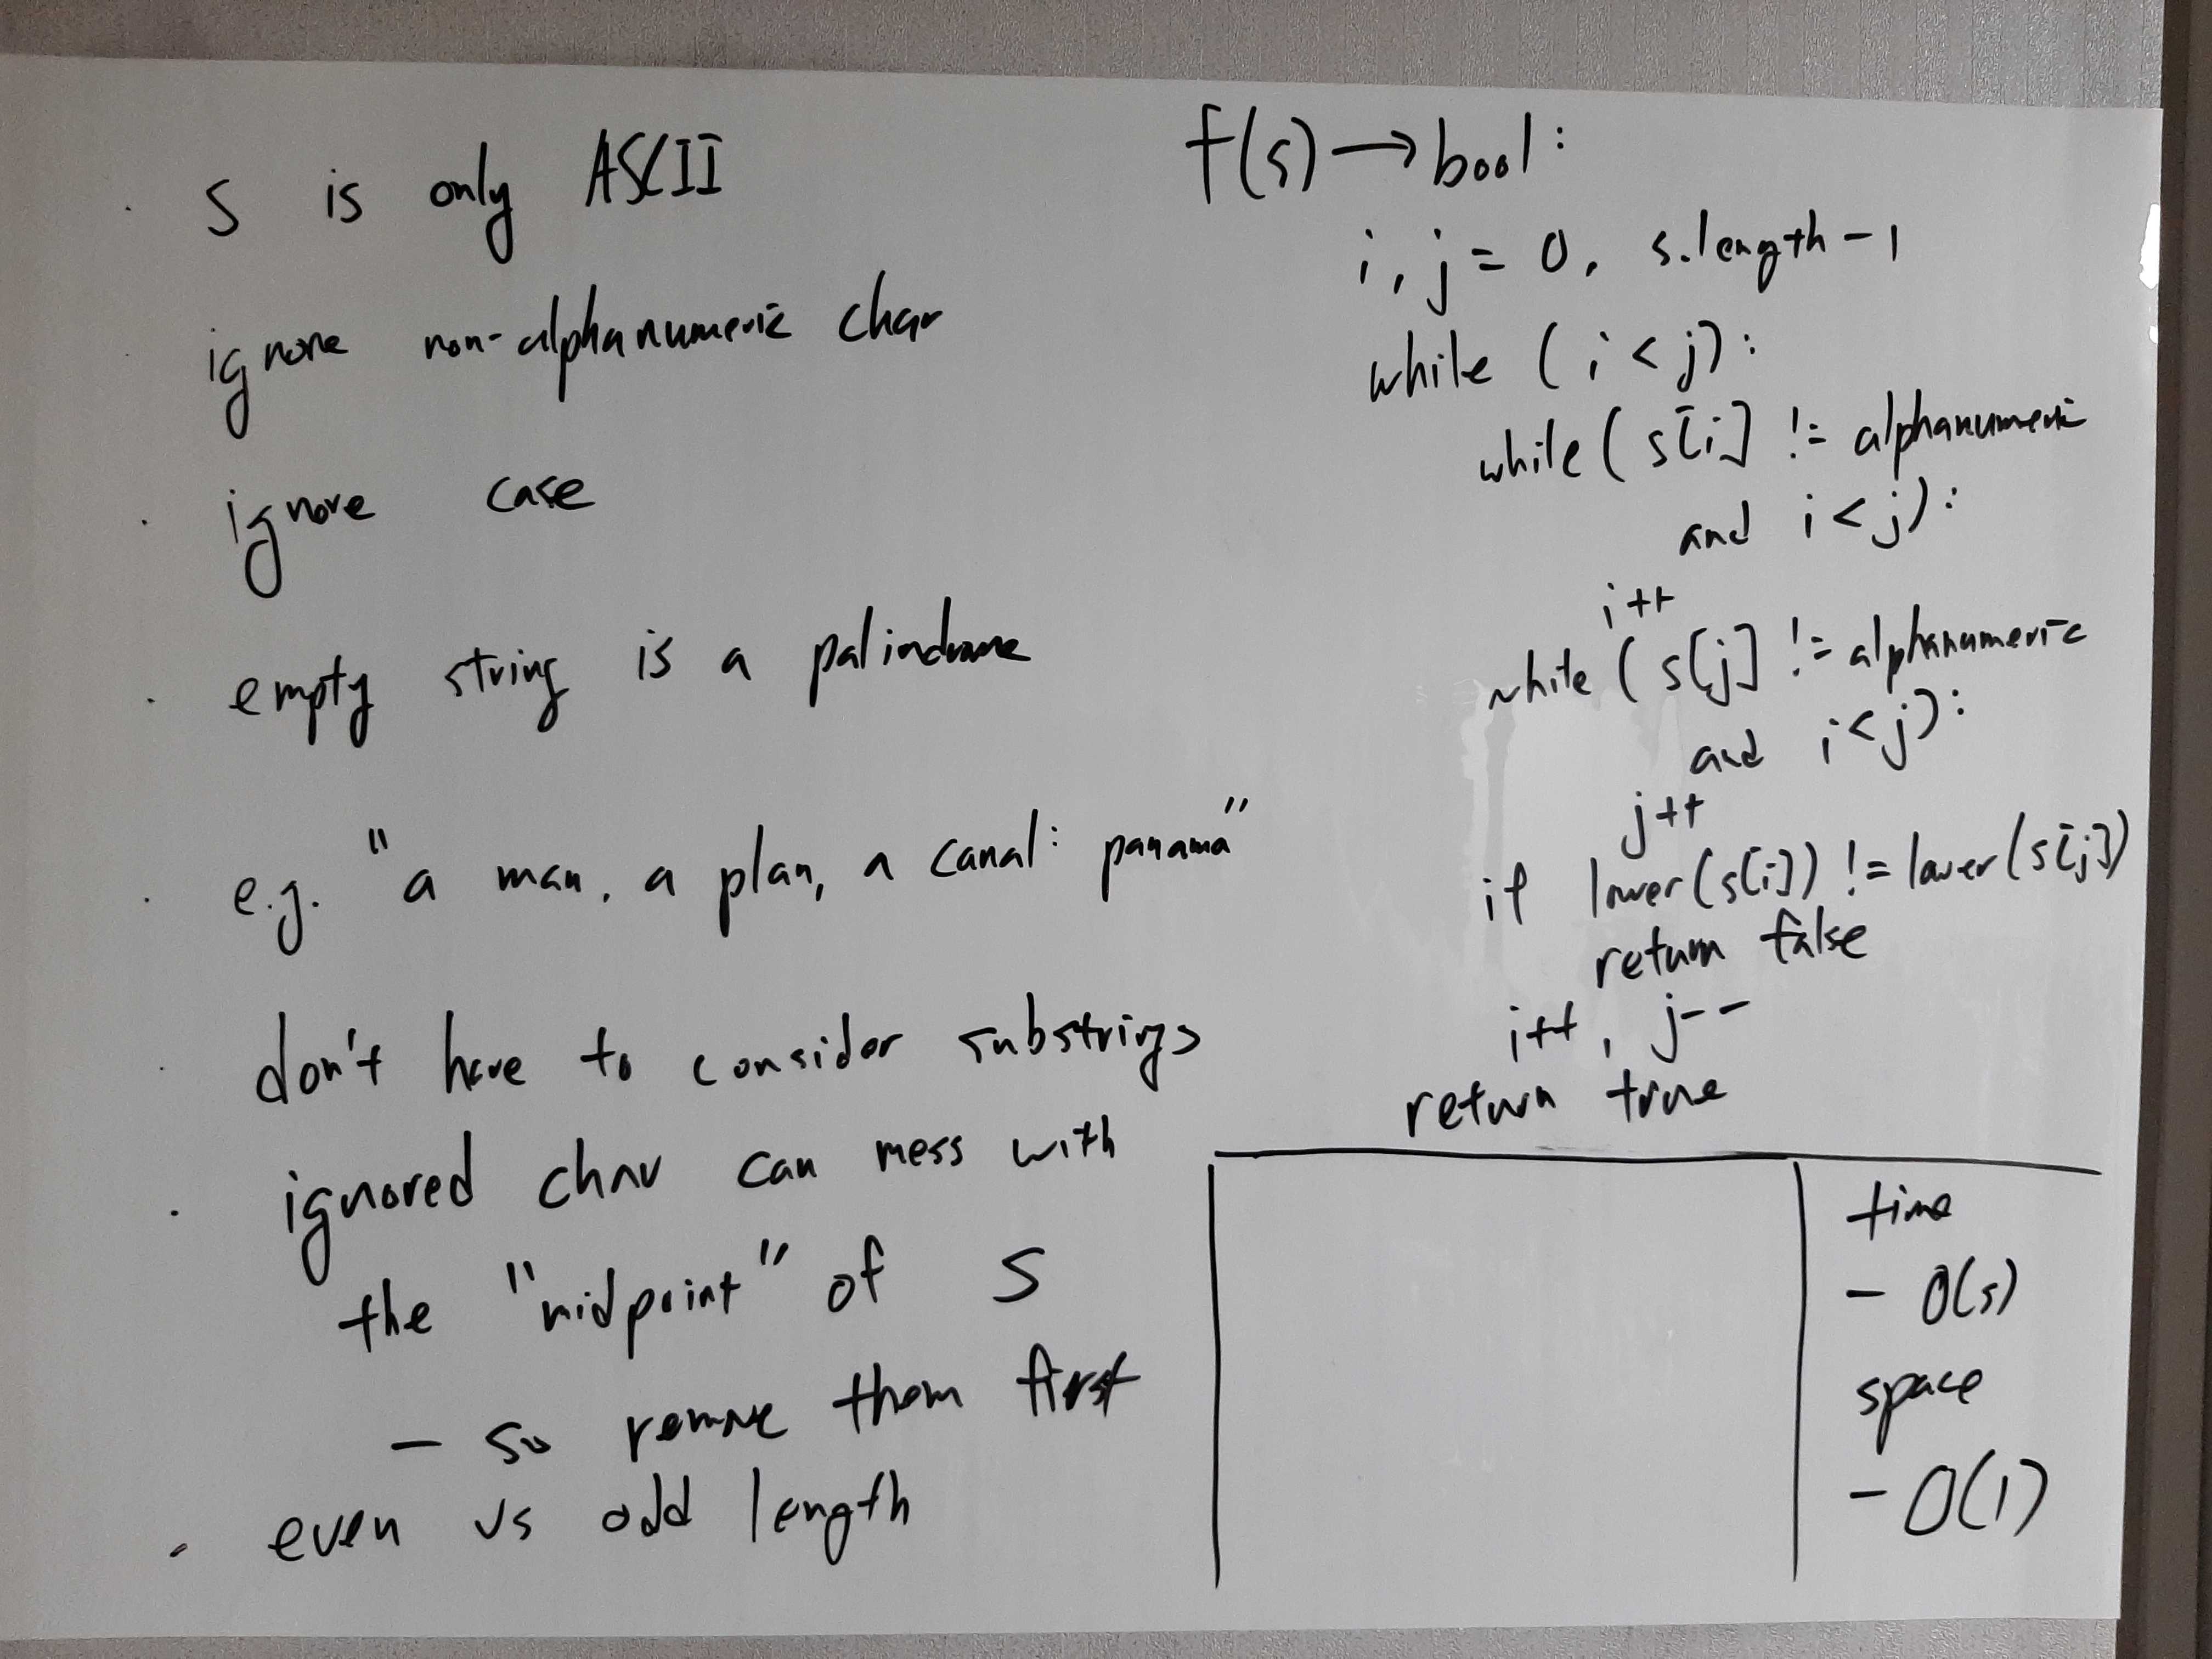 s is only ASCII
ignore non-alphanumeric char
ignore case
empty string is a palindrome
e.g. "a man, a plan, a canal: panama"
don't have to consider substrings
ignored char can mess with
the "midpoint" of s
- so remove them first
even vs odd length
f(s) → bool:
i, j = 0, s.length - 1
while (i < j):
while (s[i] != alphanumeric
and i < j):
i++
while (s[j] != alphanumeric
and i < j):
j++
if lower(s[i]) != lower(s[j])
return false
i++, j--
return true
time
- O(s)
space
- O(1)